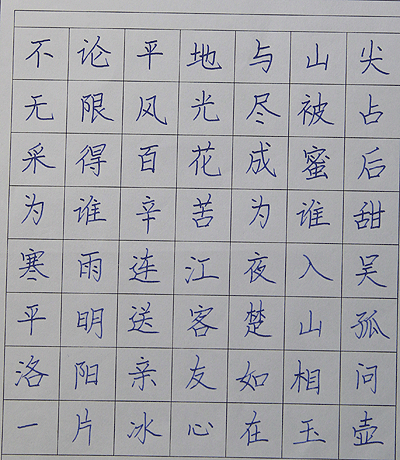 不论平地与山尖
无限风光尽被占
采得百花成蜜后
为谁辛苦为谁甜
寒雨连江夜入吴
平明送客楚山孤
洛阳亲友如相问
一片冰心在玉壶